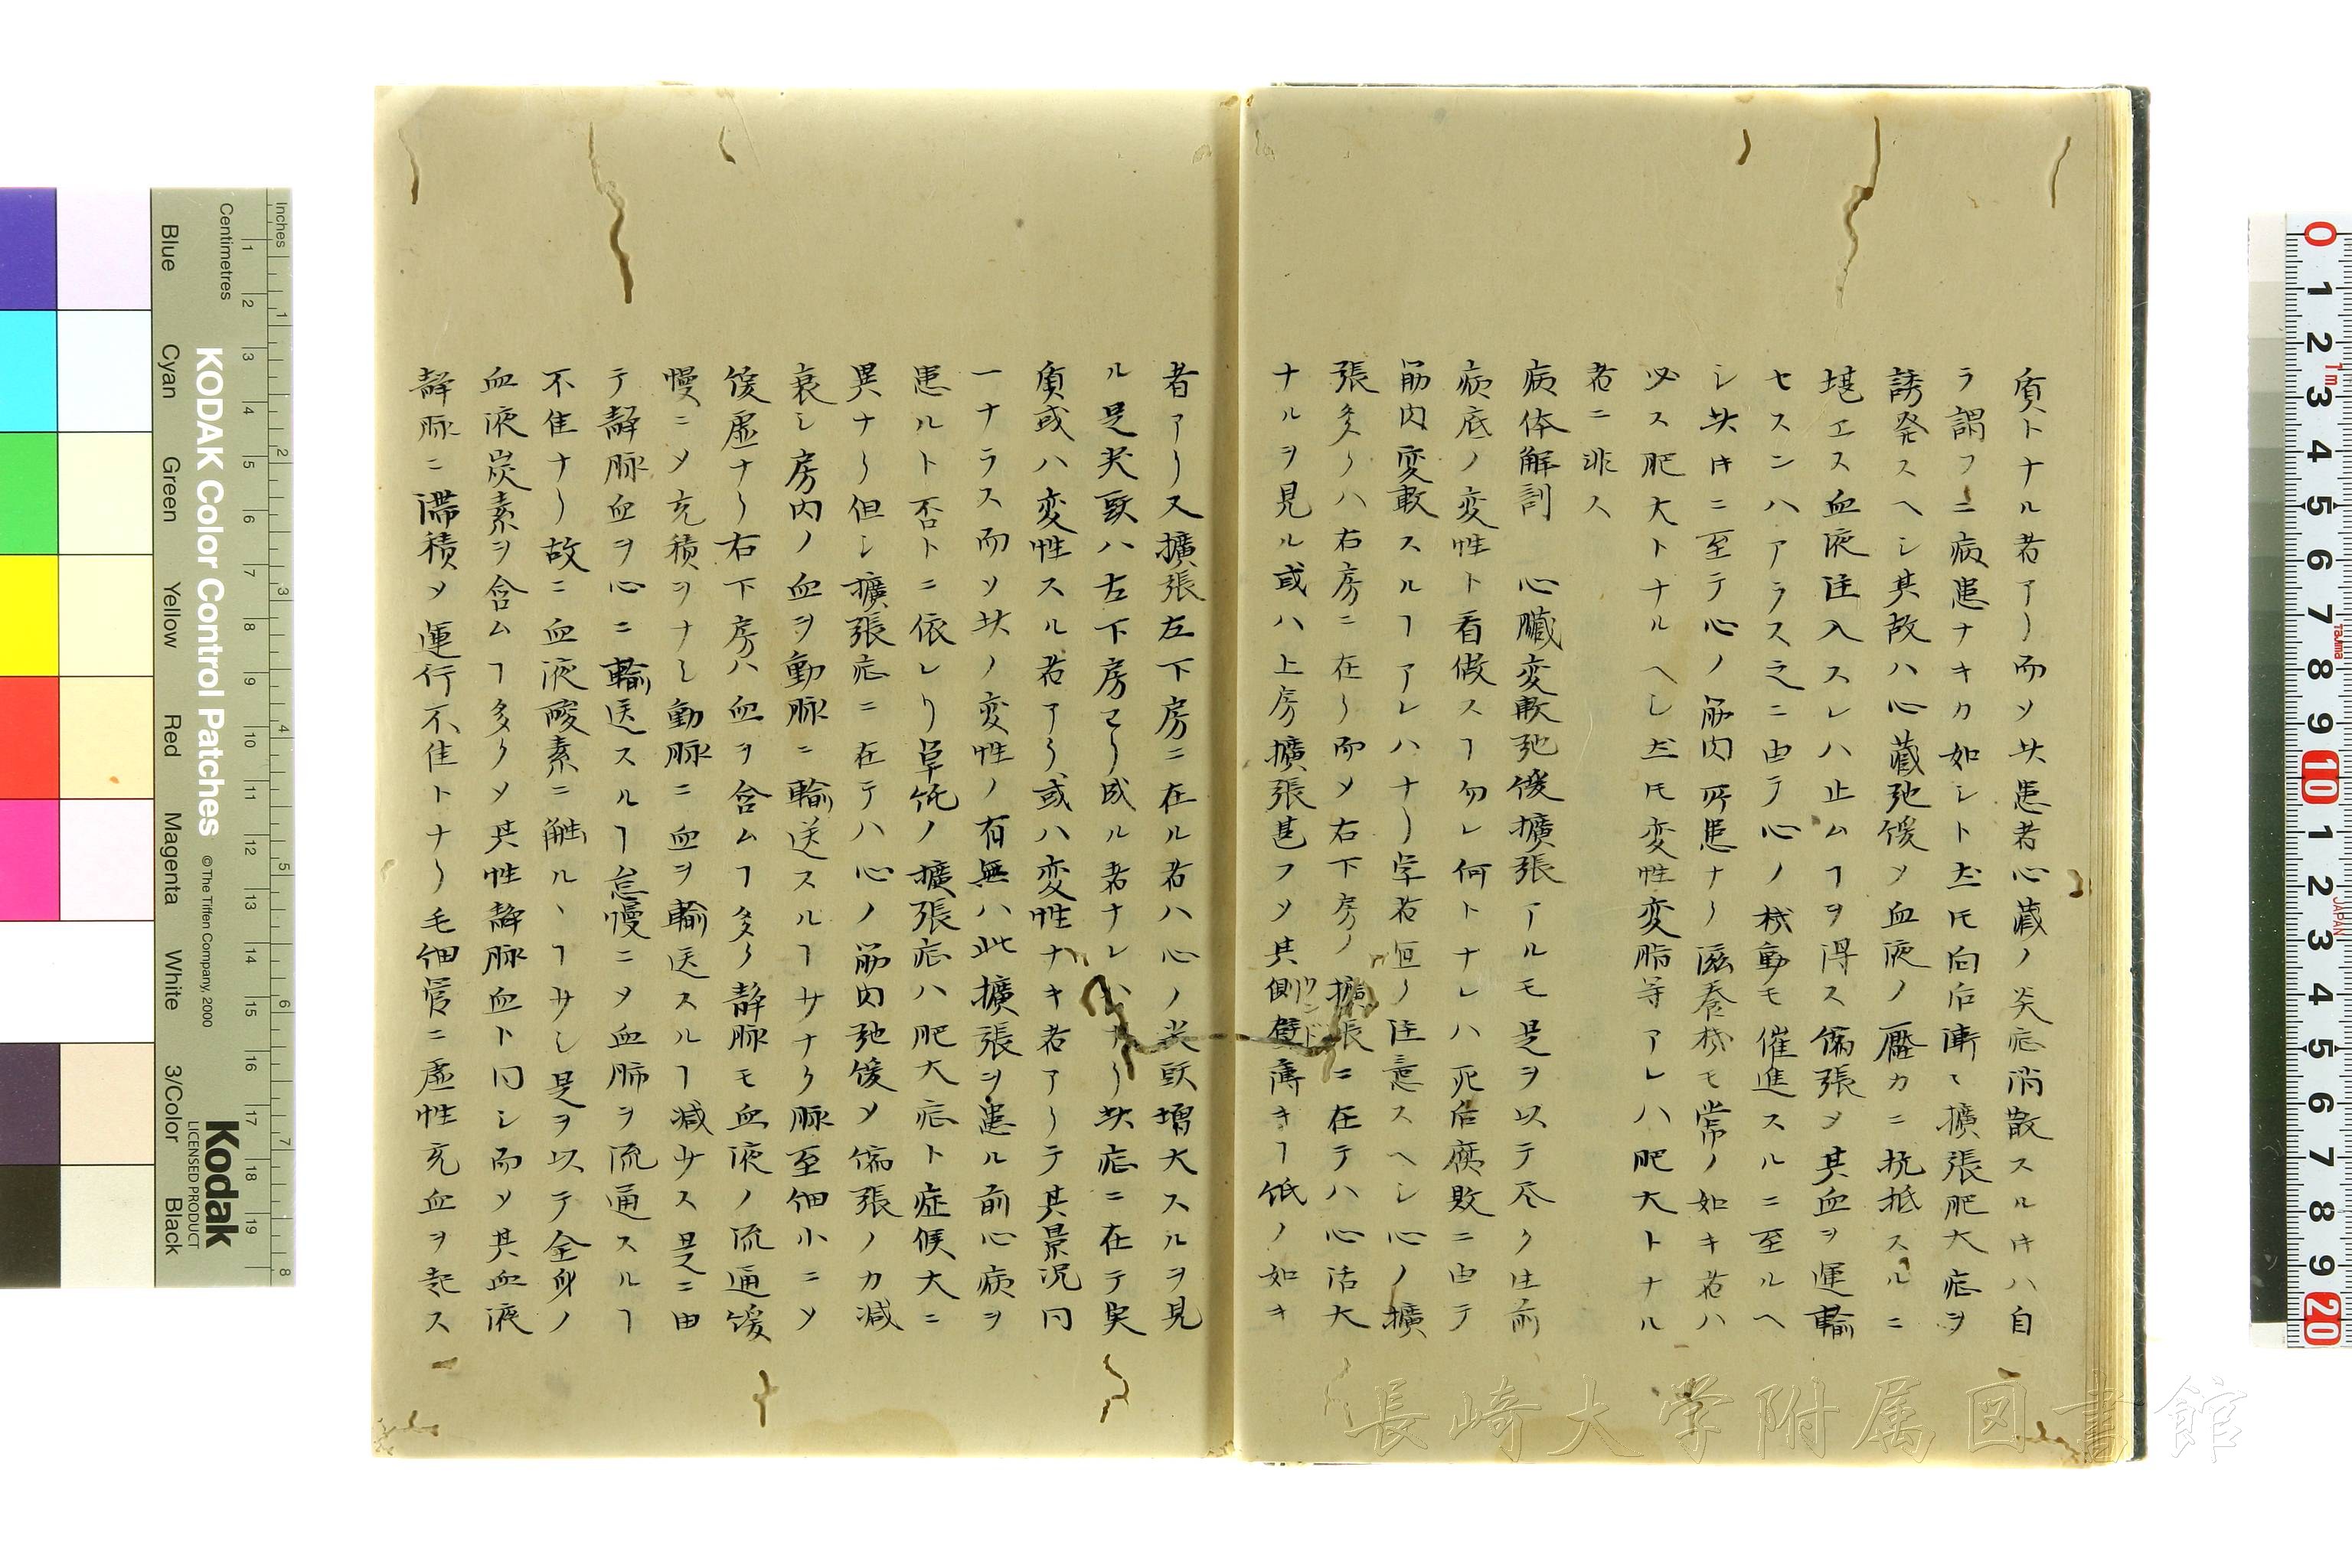 質トナル者アリ而ソ此患者心藏ノ炎症消散スル𪜈ハ自
ラ謂フニ病患ナキカ如シト𪜈向后漸々擴張肥大症ヲ
誘発スヘシ其故ハ心藏弛緩ソ血液ノ壓力ニ抗抵スルニ
堪エス血液注入スレハ止ムヿヲ得ス偏張ソ其血ヲ運輸
セスンハアラス之ニ由テ心ノ機動モ催進スルニ至ルヘ
シ此𪜈ニ至テ心ノ筋肉所患ナリ滋養機モ常ノ如キ者ハ
必ス肥大トナルヘシ𪜈変性変脂等アレハ肥大トナル
者ニ非ス
病体解剖 心臓変軟弛緩擴張アルモ是ヲ以テ尽ク生前
病底ノ変性ト看做スヿ勿レ何トナレハ死后腐敗ニ由テ
筋肉変軟スルヿアレハナリ学者恒ノ注意スヘシ心ノ擴
張多クハ右房ニ在リ而ソ右下房ノ擴張ニ在テハ心活大
ナルヲ見ル或ハ上房擴張甚フソ其側壁薄キヿ紙ノ如キ
者アリス擴張左下房ニ在ル者ハ心ノ尖頭増大スルヲ見
ル是尖頭ハ左下房ヨリ成ル者ナレハナリ此症ニ在テ実
質或ハ変性スル者アリ或ハ変性ナキ者アリテ其景況同
一ナラス而ソ此ノ変性ノ有無ハ此擴張ヲ患ル前心病ヲ
患ルト否トニ依レリ単純ノ擴張症ハ肥大症ト症候大ニ
異ナリ但シ擴張症ニ在テハ心ノ筋肉弛緩ソ偏張ノ力減
衰シ房内ノ血ヲ動脉ニ輸送スルヿサナク脉至細小ニソ
緩虚ナリ右下房ハ血ヲ含ムヿ多ク静脉モ血液ノ流通緩
慢ニソ充積ヲナシ動脉ニ血ヲ輸送スルヿ減少ス是ニ由
テ静脉血ヲ心ニ輸送スルヿ怠慢ニソ血肺ヲ流通スルヿ
不佳ナリ故ニ血液酸素ニ触ルヽヿサシ是ヲ以テ全身ノ
血液炭素ヲ含ムヿ多クソ其性静脉血ト同シ而ソ其血液
静脉ニ滞積ソ運行不佳トナリ毛細管ニ虚性充血ヲ起ス
長崎大学附属図書館
KODAK Color Control Patches
© The Tiffen Company, 2000
Kodak
LICENSED PRODUCT
Inches
Centimetres
Blue Cyan Green Yellow Red Magenta White 3/Color Black